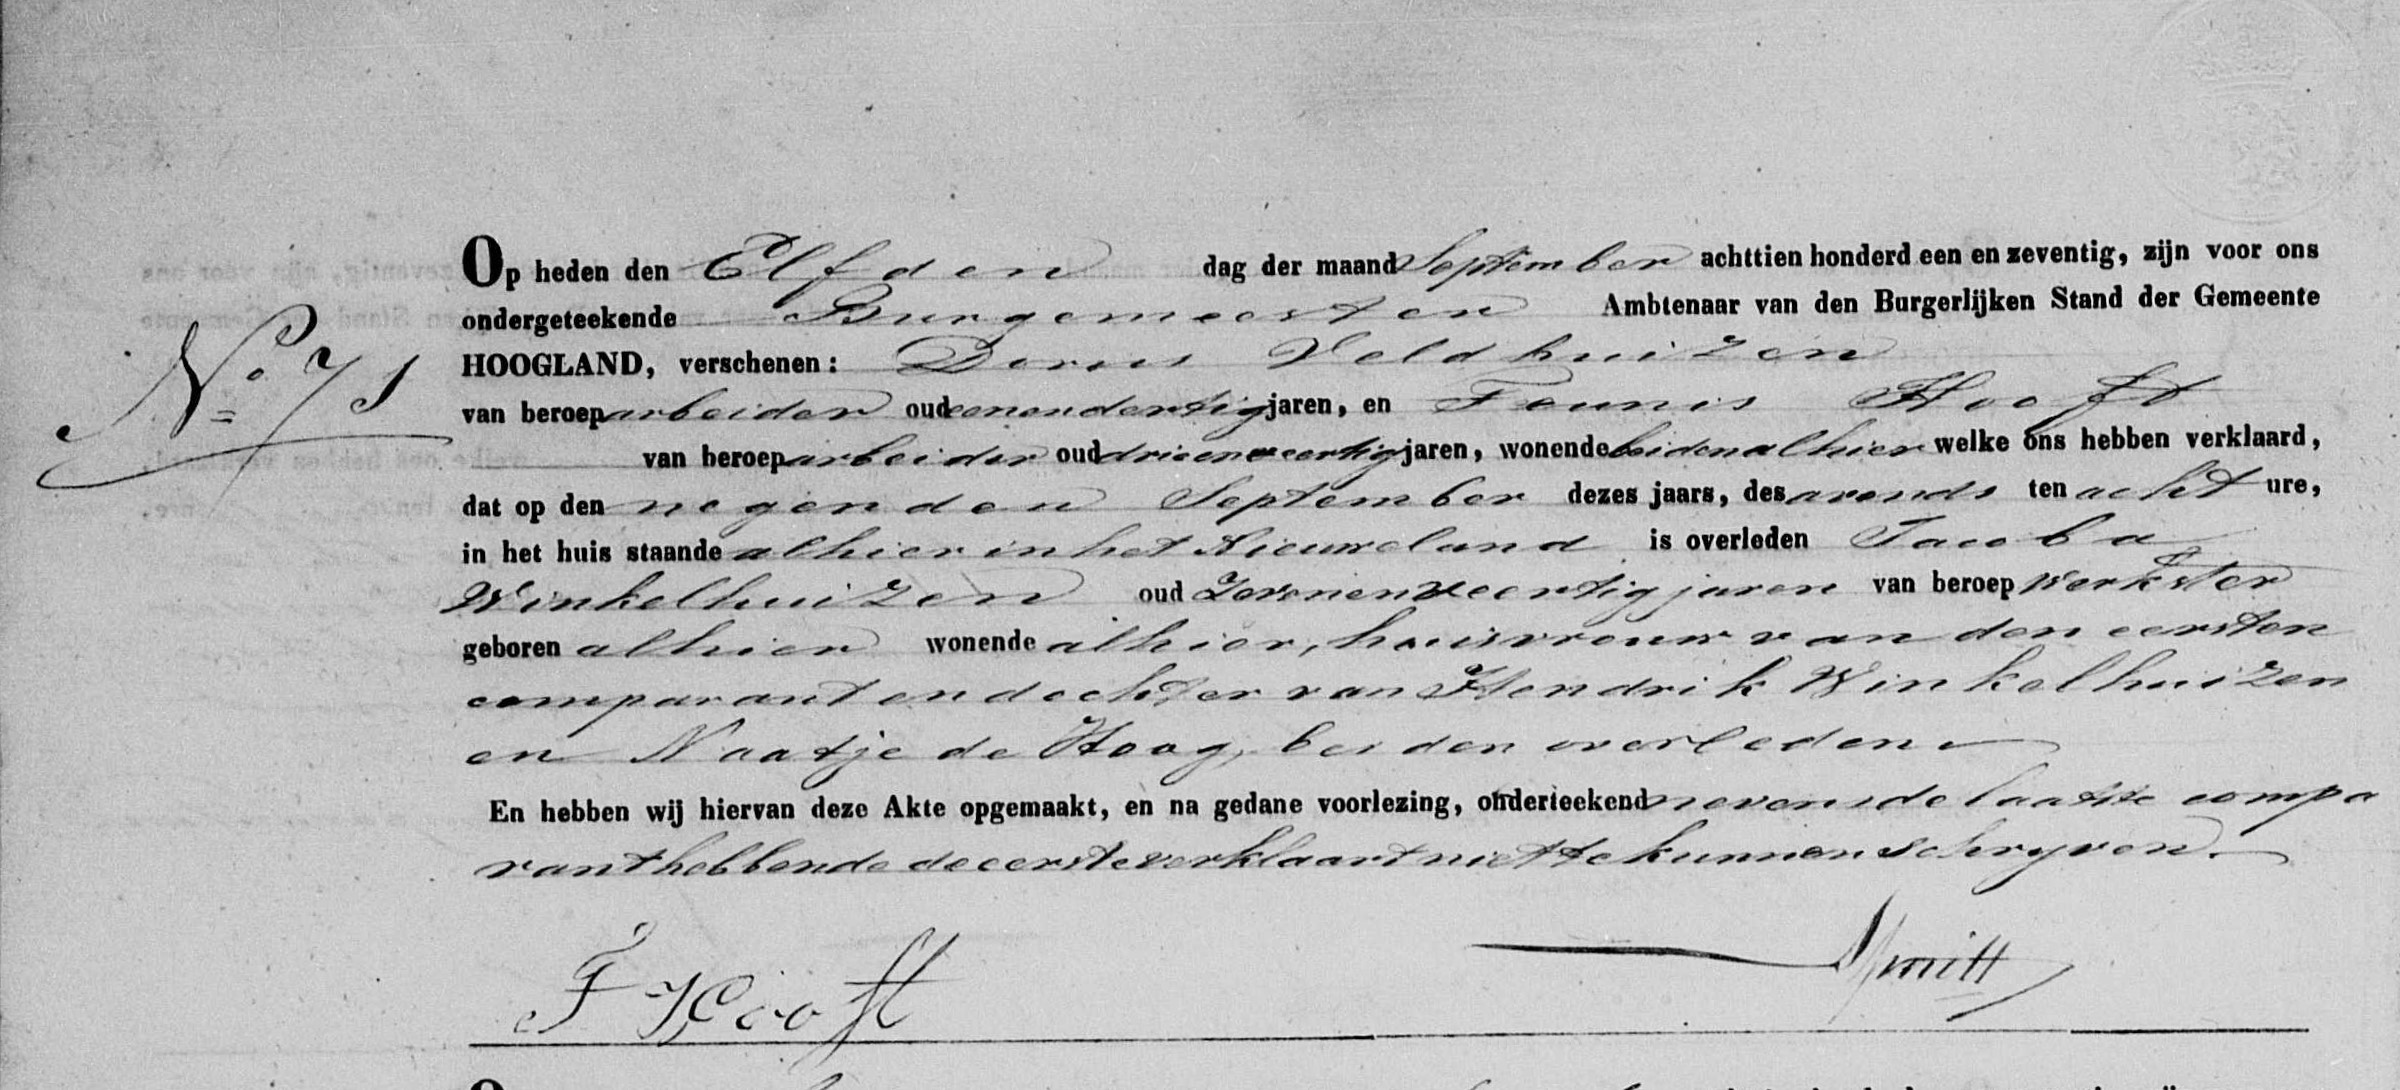 Op heden den Elfden dag der maand September achttien honderd een en zeventig, zijn voor ons
ondergeteekende Burgemeester Ambtenaar van den Burgerlijken Stand der Gemeente
HOOGLAND, verschenen: Dorus Veldhuizen
No 71
van beroep arbeider oud eenendertig jaren, en Teunis Hooft
van beroep arbeider oud drieenveertig jaren, wonende beiden alhier welke ons hebben verklaard,
dat op den negenden September dezes jaars, des avonds ten acht ure,
in het huis staande alhier in het Nieuweland is overleden Jacoba
Winkelhuizen oud Zevenenveertig jaren van beroep werkster
geboren alhier wonende alhier, huisvrouw van den eersten
comparant en dochter van Hendrik Winkelhuizen
en Naatje de Hoog, beiden overleden
En hebben wij hiervan deze Akte opgemaakt, en na gedane voorlezing, onderteekend nevens de laatste compa
rant hebbende de eerste verklaart niet te kunnen schryven.
T Hooft Smitt